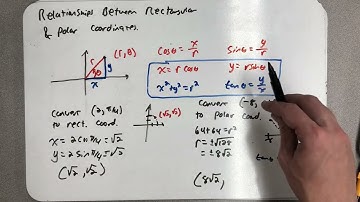 Relationships Between Rectangular
& Polar Coordinates.
(r, θ)
r
y
θ
x
cosθ = x/r
sinθ = y/r
x = r cosθ
y = r sinθ
x² + y² = r²
tanθ = y/x
Convert (2, π/4)
to rect. coord.
x = 2 cos π/4 = √2
y = 2 sin π/4 = √2
(√2, √2)
(√2, √2)
Convert (-8,
to polar coord.
64 + 64 = r²
r = ±√128
= ±8√2
(8√2,
tan